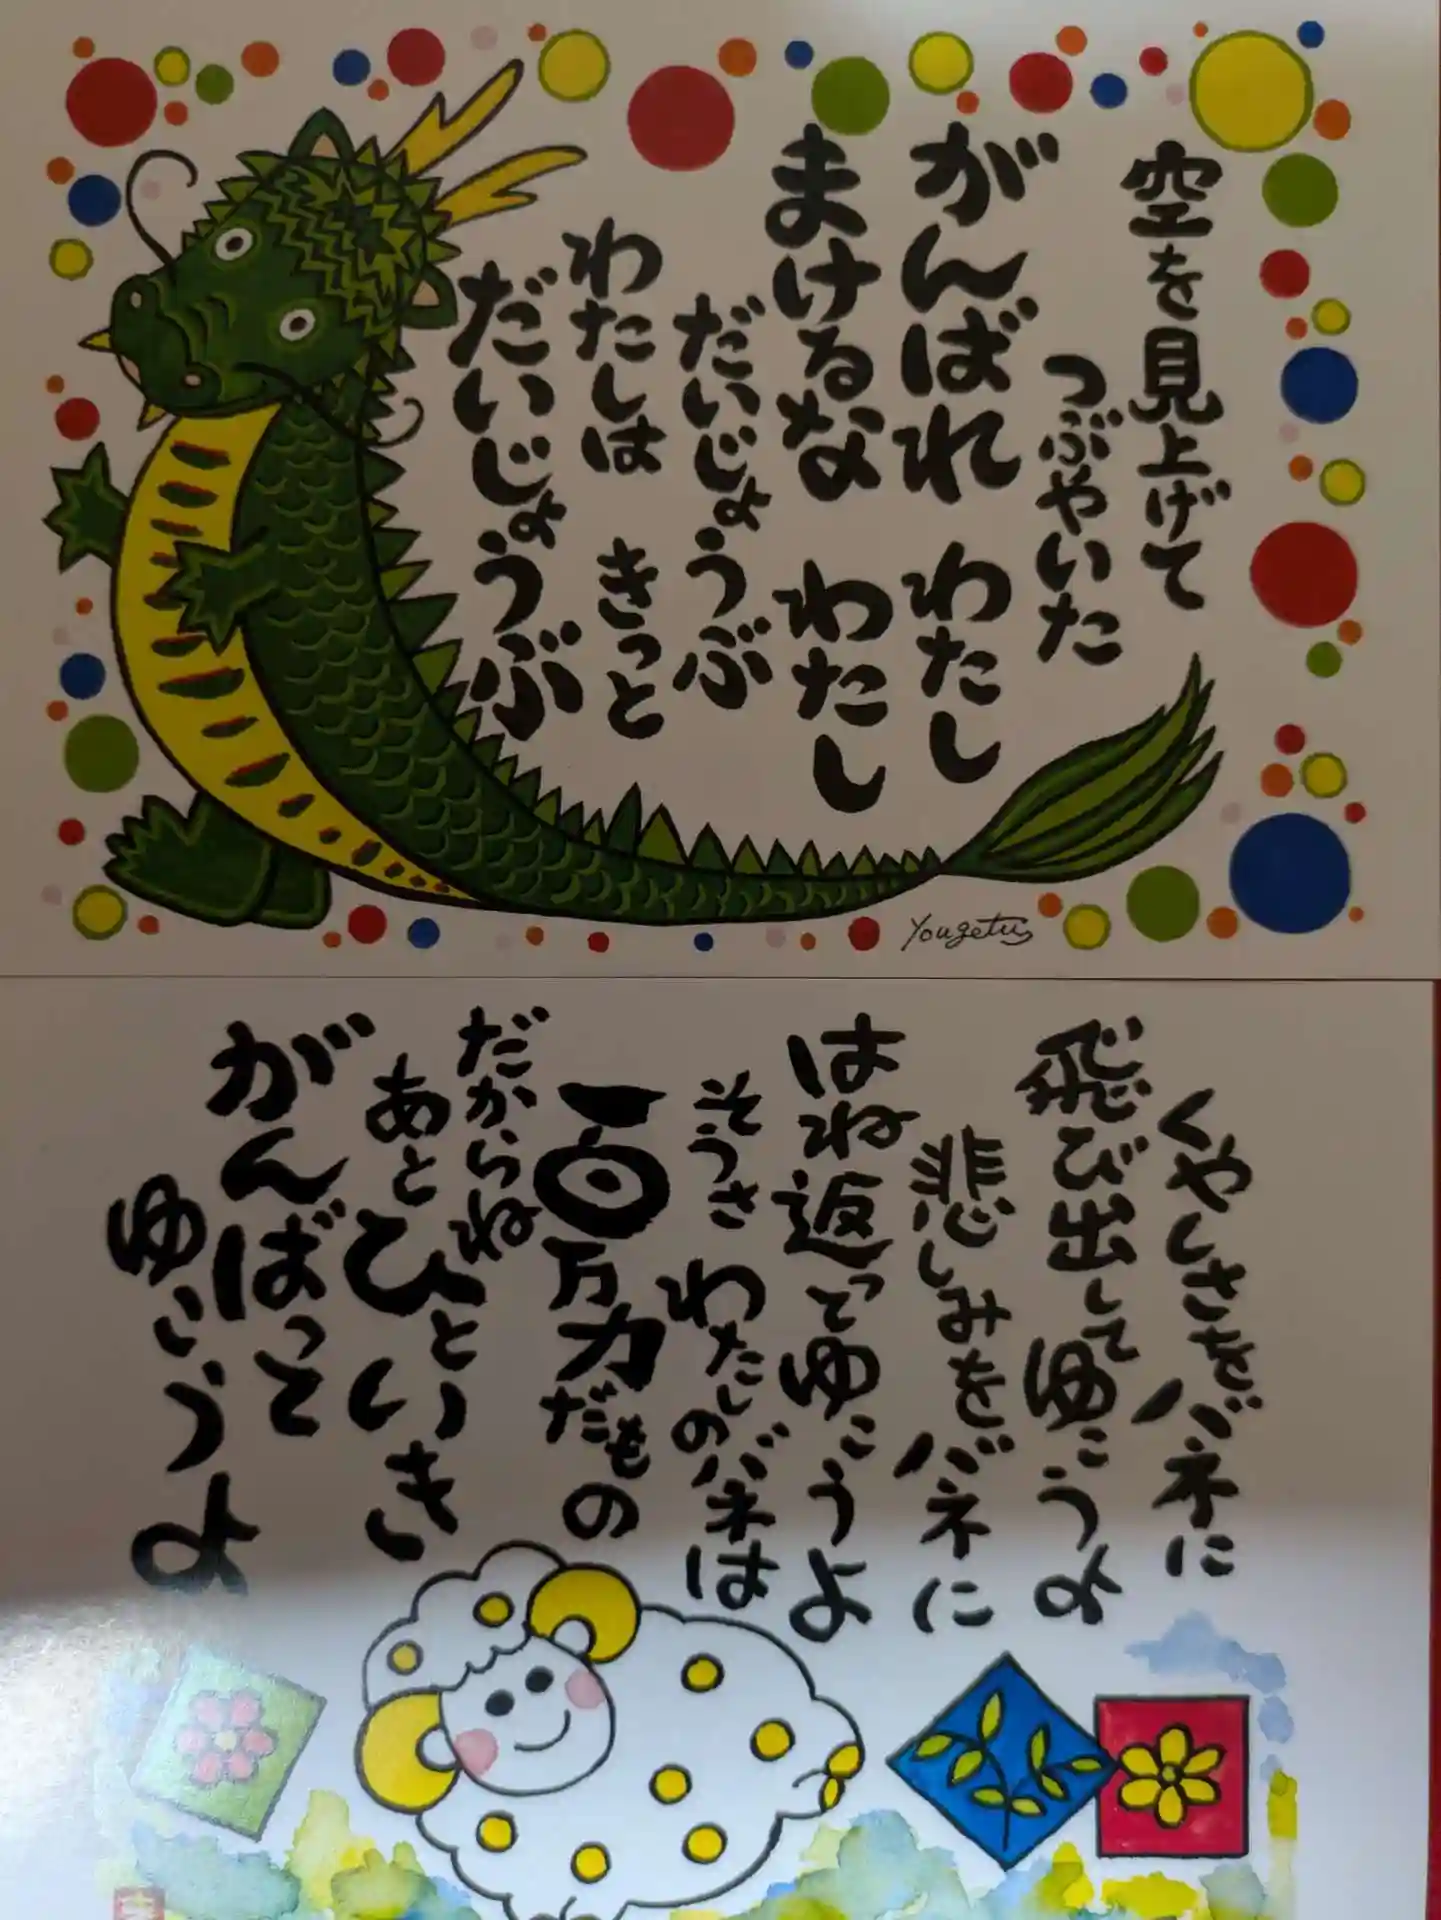 空を見上げて
つぶやいた
がんばれ わたし
まけるな わたし
だいじょうぶ
わたしは きっと
だいじょうぶ
Yougetu
くやしさをバネに
飛び出してゆこうよ
悲しみをバネに
はね返ってゆこうよ
そうさ わたしのバネは
百万力だもの
だからね
あとひといき
がんばって
ゆこうよ